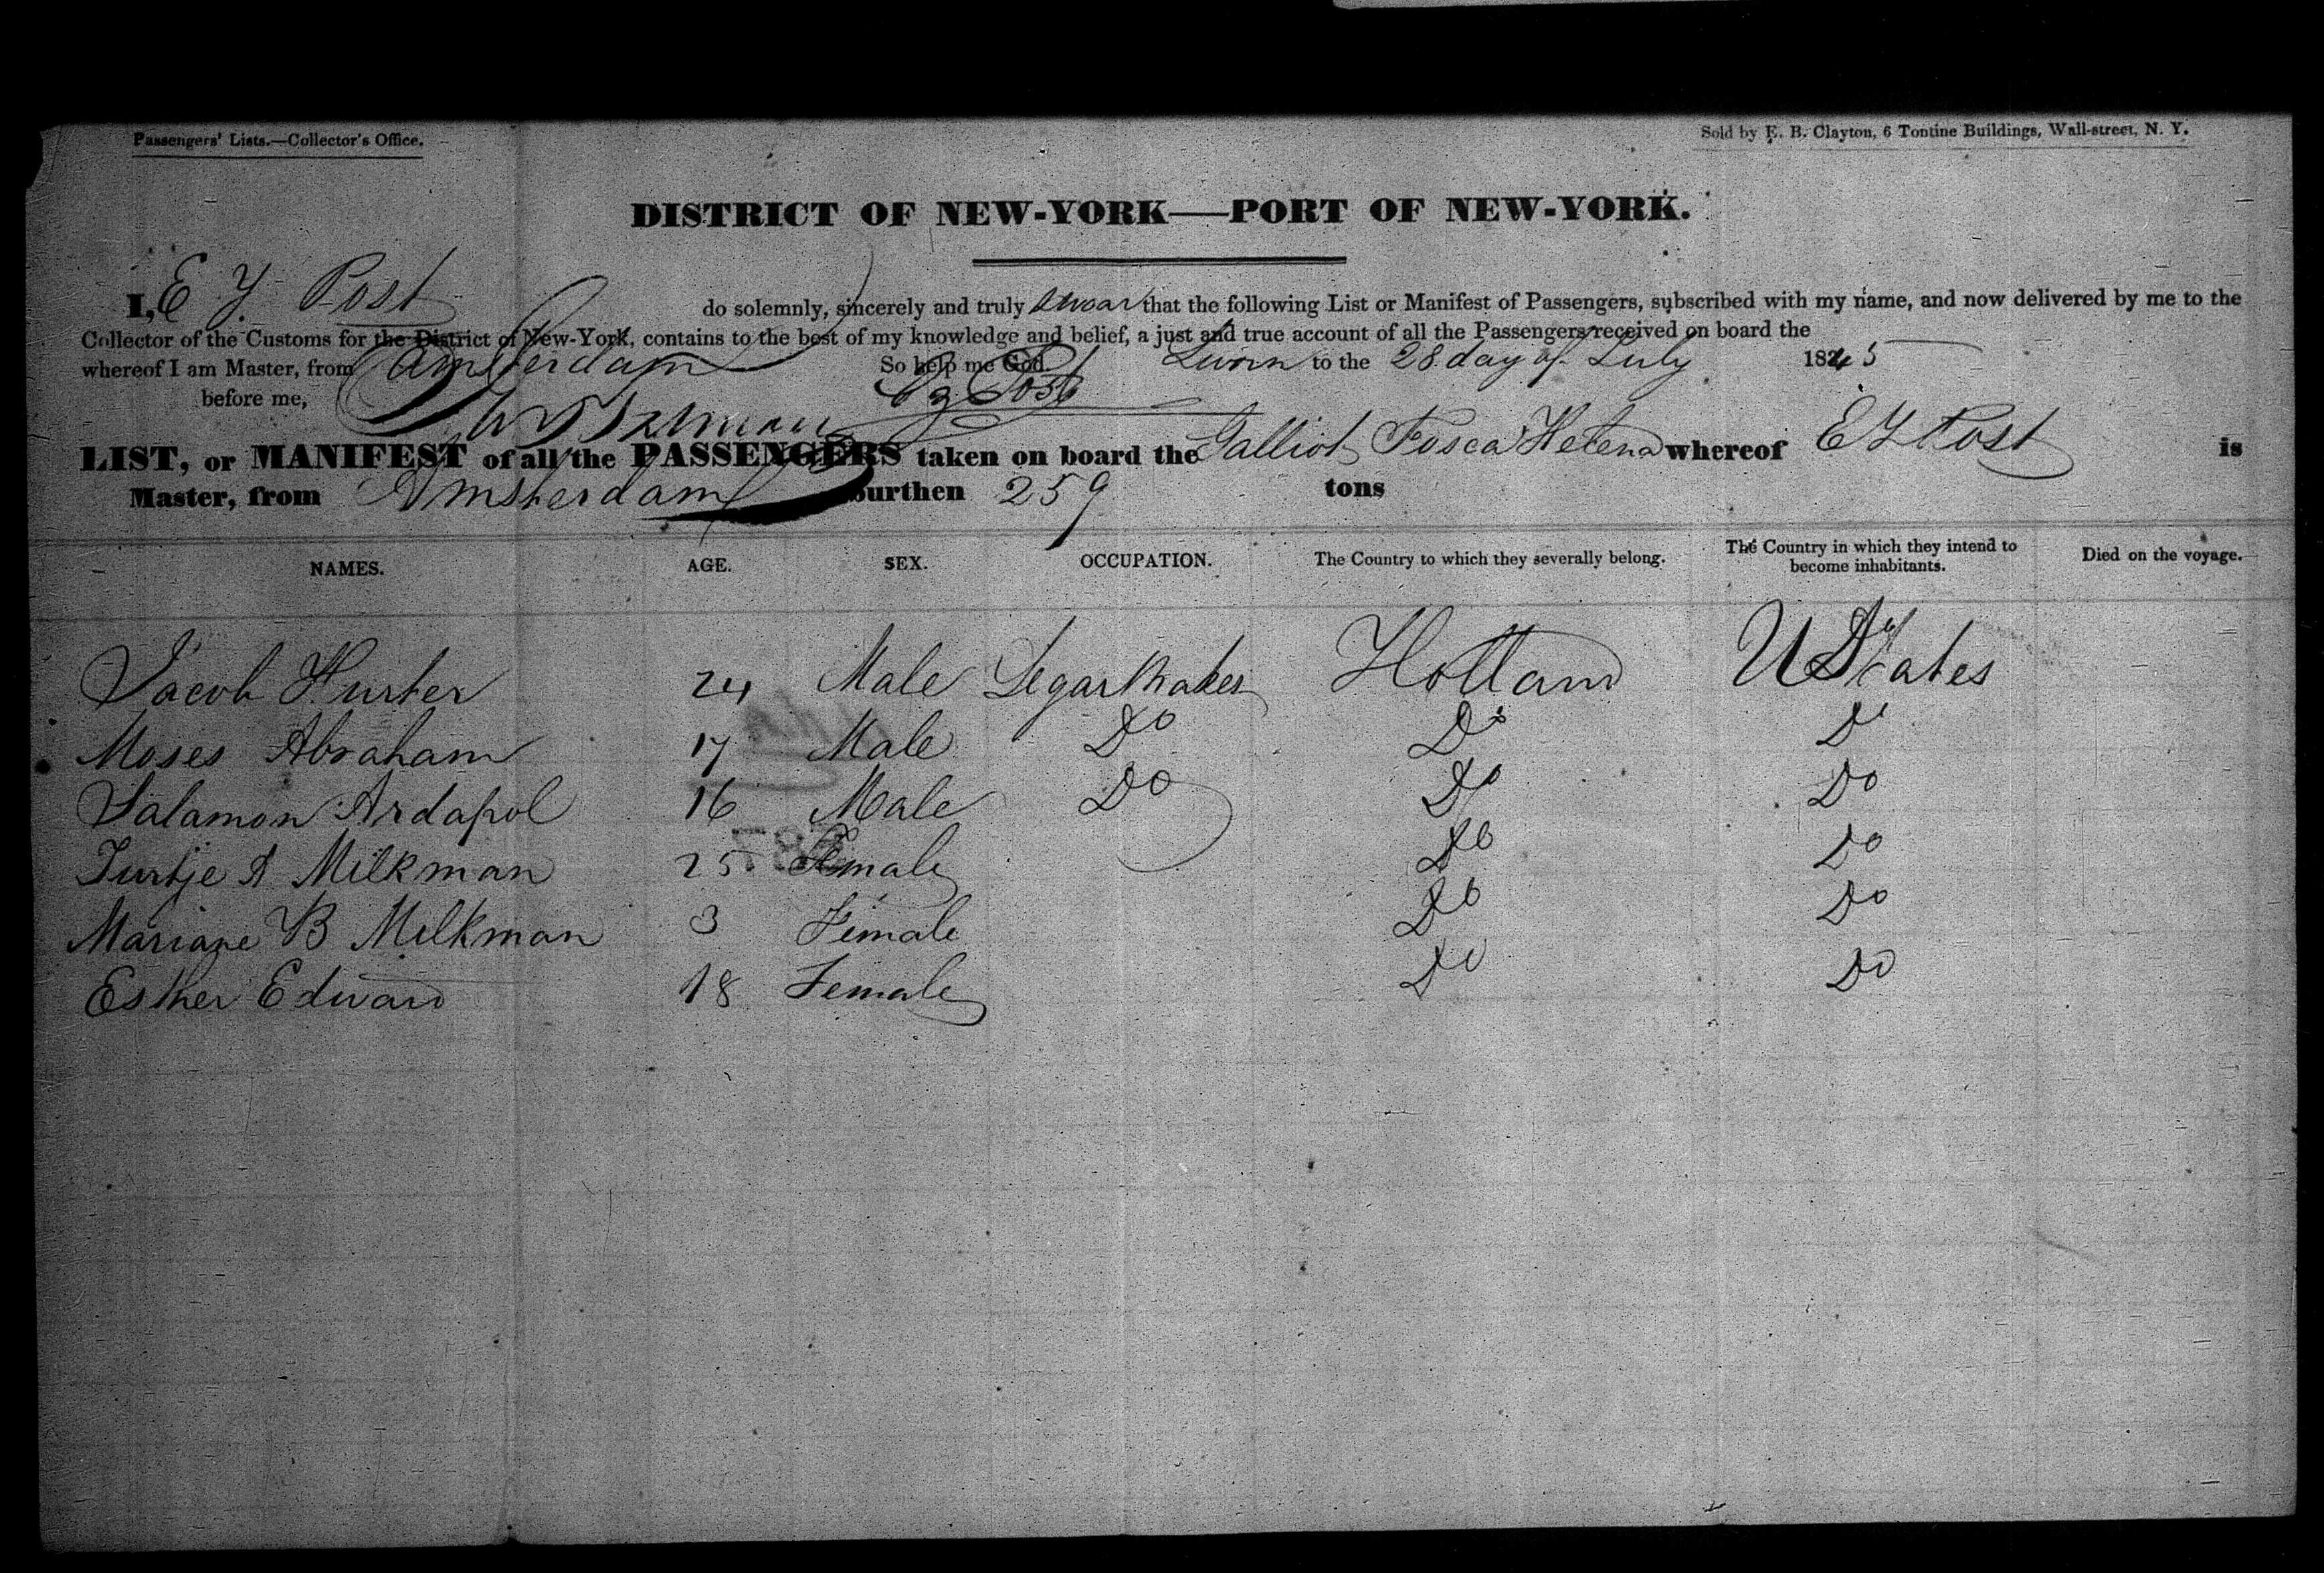 Passengers' Lists.—Collector's Office.
Sold by E. B. Clayton, 6 Tontine Buildings, Wall-street, N. Y.
DISTRICT OF NEW-YORK—PORT OF NEW-YORK.
I, E Y Post do solemnly, sincerely and truly swear that the following List or Manifest of Passengers, subscribed with my name, and now delivered by me to the
Collector of the Customs for the District of New-York, contains to the best of my knowledge and belief, a just and true account of all the Passengers received on board the
whereof I am Master, from Amsterdam So help me God. Sworn to the 28 day of July 1845
before me, Post
LIST, or MANIFEST of all the PASSENGERS taken on board the Galliot Fosca Helena whereof E Y Post is
Master, from Amsterdam burthen 259 tons
NAMES. AGE. SEX. OCCUPATION. The Country to which they severally belong. The Country in which they intend to become inhabitants. Died on the voyage.
Jacob Hurter 24 Male Segar Maker Holland U States
Moses Abraham 17 Male Do Do Do
Salamon Ardapol 16 Male Do Do Do
Turtje A Milkman 25 Female Do Do
Mariane B Milkman 3 Female Do Do
Esther Edward 18 Female Do Do